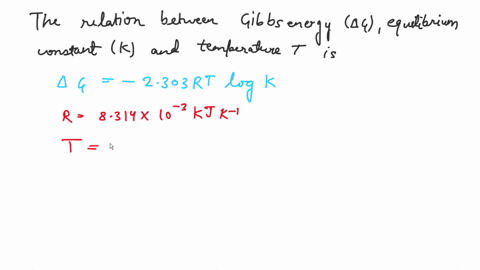 The relation between Gibbs energy (ΔG), equilibrium
constant (K) and temperature T is
ΔG = - 2.303RT log K
R = 8.314 × 10⁻³ KJ K⁻¹
T =